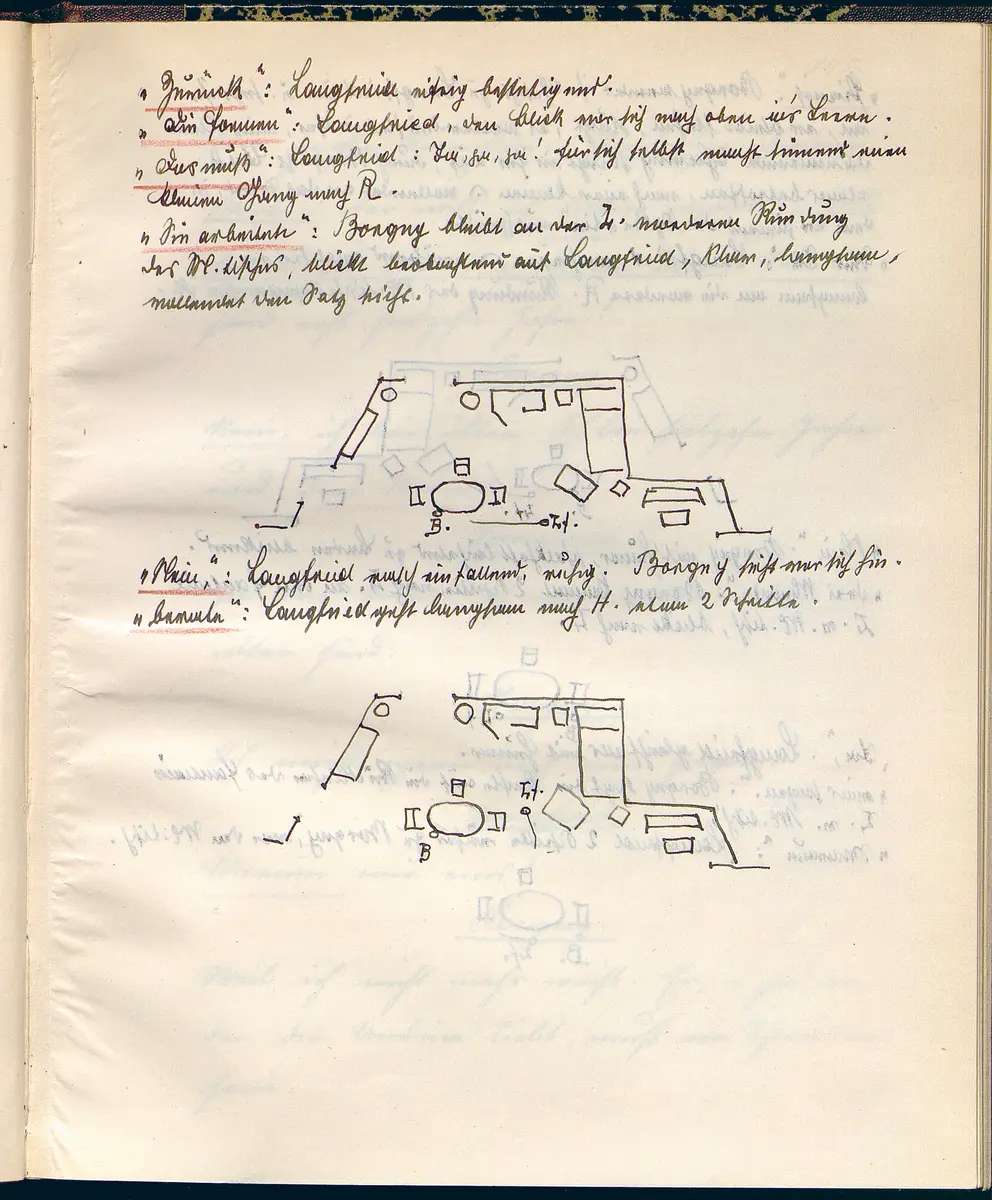 „Zurück“: Langfried eifrig bestätigend.
„Die Formen“: Langfried, den Blick vor sich nach oben ins Leere.
„Das muß“: Langfried: Ja, ja, ja! für sich selbst macht einen
kleinen Gang nach R.
„Sie arbeiten“: Borgny bleibt an der L. vorderen Rundung
des M. tisches, blickt beobachtend auf Langfried, klar, langsam,
vollendet den Satz nicht.
B.
Lf.
„Nein,“: Langfried rasch einfallend, ruhig. Borgny sieht vor sich hin.
„berate“: Langfried geht langsam nach H. etwa 2 Schritte.
Lf.
B